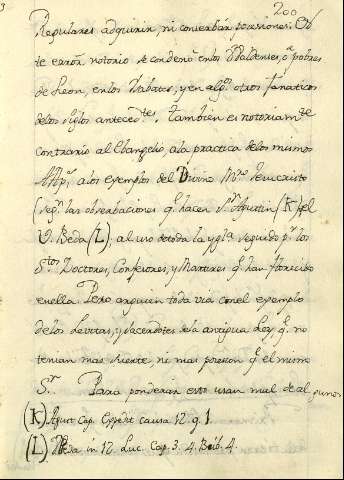 3
200
Regulares adquirir, ni conserbar posesiones. Es-
te error notorio se condenó en los Valdenses, ó pobres
de Leon, en los Abates, y en algs. otros fanaticos
de los siglos antecedtes. Tambien es notoriamte
contrario al Ebangelio, a la practica de los mismos
App.s, a los exemplos del Divino Mro. Jesucristo
(segn. las obserbaciones q.e hacen Sn. Agustin (K) y el
V. Beda (L), al uso de toda la ygla. seguido pr. los
Stos. Doctores, Confesores, y Martires q.e han florecido
en ella. Pero arguien toda via con el exemplo
de los Levitas, y sacerdotes de la antigua Ley q.e no
tenian mas suerte, ni mas posesion q.e el mismo
Sr. Para ponderar esto usan mal de algunos
(K) Agust. Cap. Expedit causa 12. q. 1.
(L) Beda in 12 Luc. Cap. 3. 4. Bib. 4.